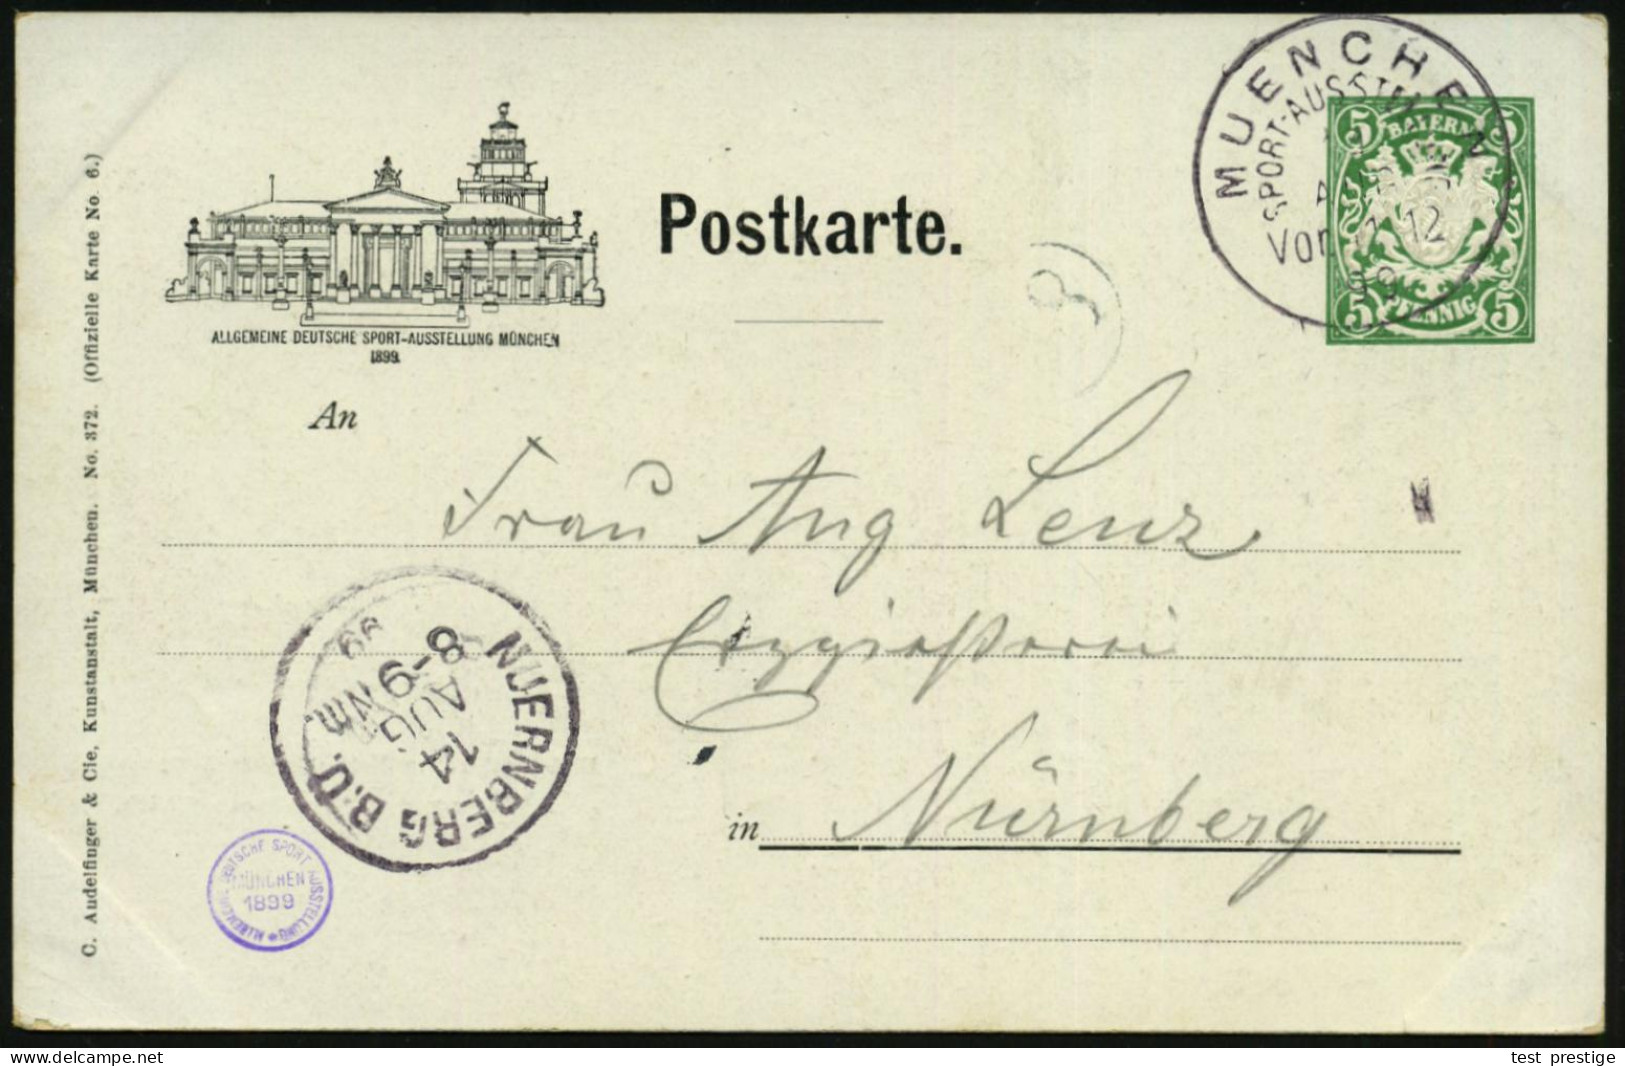 MUENCHEN
SPORT-AUSST
Vor 11-12
99
5 BAYERN 5
5 PFENNIG 5
Postkarte.
ALLGEMEINE DEUTSCHE SPORT-AUSSTELLUNG MÜNCHEN
1899.
An
Frau Aug Lenz
Erzgießerei
in Nürnberg
NUERNBERG B.U.
14
AUG
8-9 Nm.
99
ALLGEMEINE DEUTSCHE SPORT AUSSTELLUNG
MÜNCHEN
1899
C. Andelfinger & Cie, Kunstanstalt, München. No. 372. (Offizielle Karte No. 6.)
test_prestige